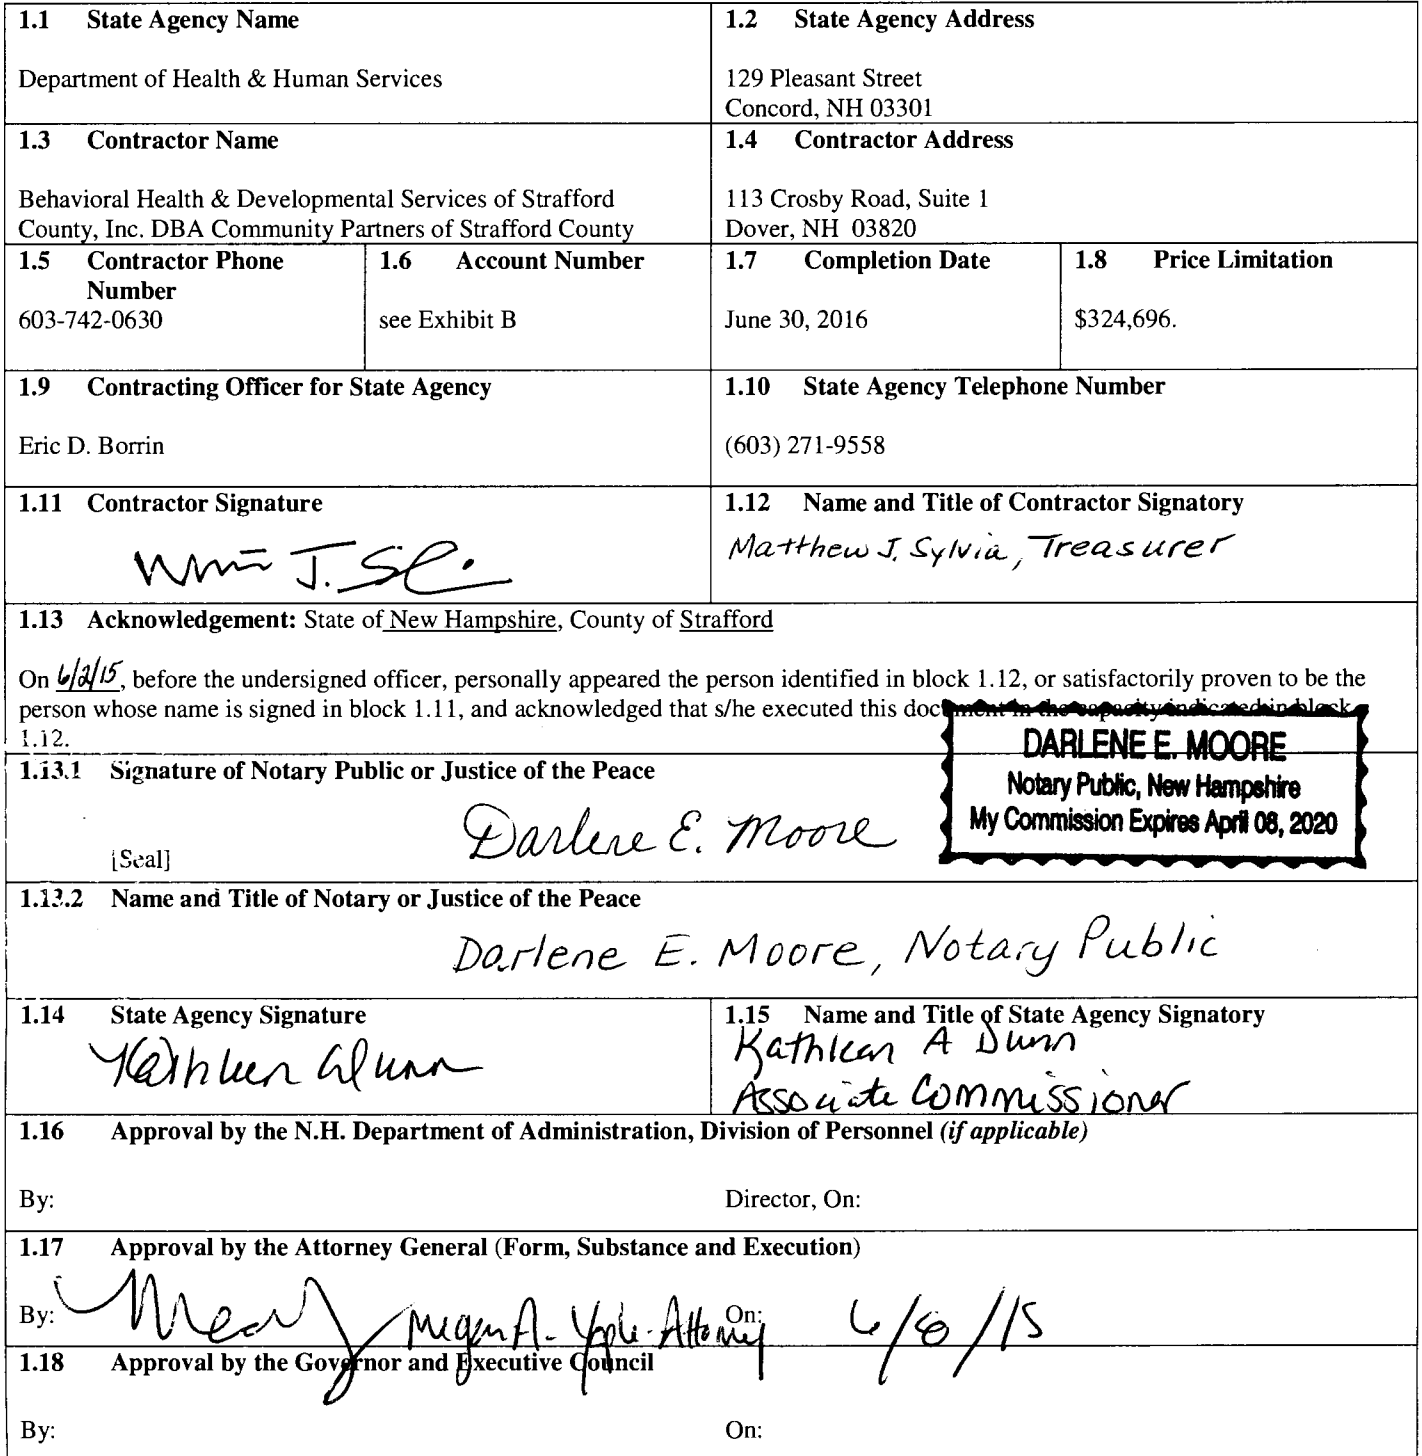 1.1 State Agency Name
1.2 State Agency Address
Department of Health & Human Services
129 Pleasant Street
Concord, NH 03301
1.3 Contractor Name
1.4 Contractor Address
Behavioral Health & Developmental Services of Strafford
County, Inc. DBA Community Partners of Strafford County
113 Crosby Road, Suite 1
Dover, NH 03820
1.5 Contractor Phone
Number
603-742-0630
1.6 Account Number
see Exhibit B
1.7 Completion Date
June 30, 2016
1.8 Price Limitation
$324,696.
1.9 Contracting Officer for State Agency
Eric D. Borrin
1.10 State Agency Telephone Number
(603) 271-9558
1.11 Contractor Signature
1.12 Name and Title of Contractor Signatory
Matthew J. Sylvia, Treasurer
1.13 Acknowledgement: State of New Hampshire, County of Strafford
On 6/2/15, before the undersigned officer, personally appeared the person identified in block 1.12, or satisfactorily proven to be the
person whose name is signed in block 1.11, and acknowledged that s/he executed this document in the capacity indicated in block
1.12.
DARLENE E. MOORE
Notary Public, New Hampshire
My Commission Expires April 08, 2020
1.13.1 Signature of Notary Public or Justice of the Peace
Darlene E. Moore
[Seal]
1.13.2 Name and Title of Notary or Justice of the Peace
Darlene E. Moore, Notary Public
1.14 State Agency Signature
Kathleen A Dunn
1.15 Name and Title of State Agency Signatory
Kathleen A Dunn
Associate Commissioner
1.16 Approval by the N.H. Department of Administration, Division of Personnel (if applicable)
By:
Director, On:
1.17 Approval by the Attorney General (Form, Substance and Execution)
By: Megan A. Yaple - Attorney On: 6/8/15
1.18 Approval by the Governor and Executive Council
By:
On: